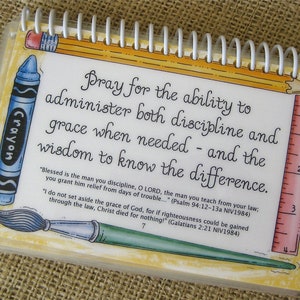 Pray for the ability to
administer both discipline and
grace when needed - and the
wisdom to know the difference.
"Blessed is the man you discipline, O LORD, the man you teach from your law;
you grant him relief from days of trouble..." (Psalm 94:12-13a NIV1984)
"I do not set aside the grace of God, for if righteousness could be gained
through the law, Christ died for nothing!" (Galatians 2:21 NIV1984)
7
Crayon
1
2
3
4